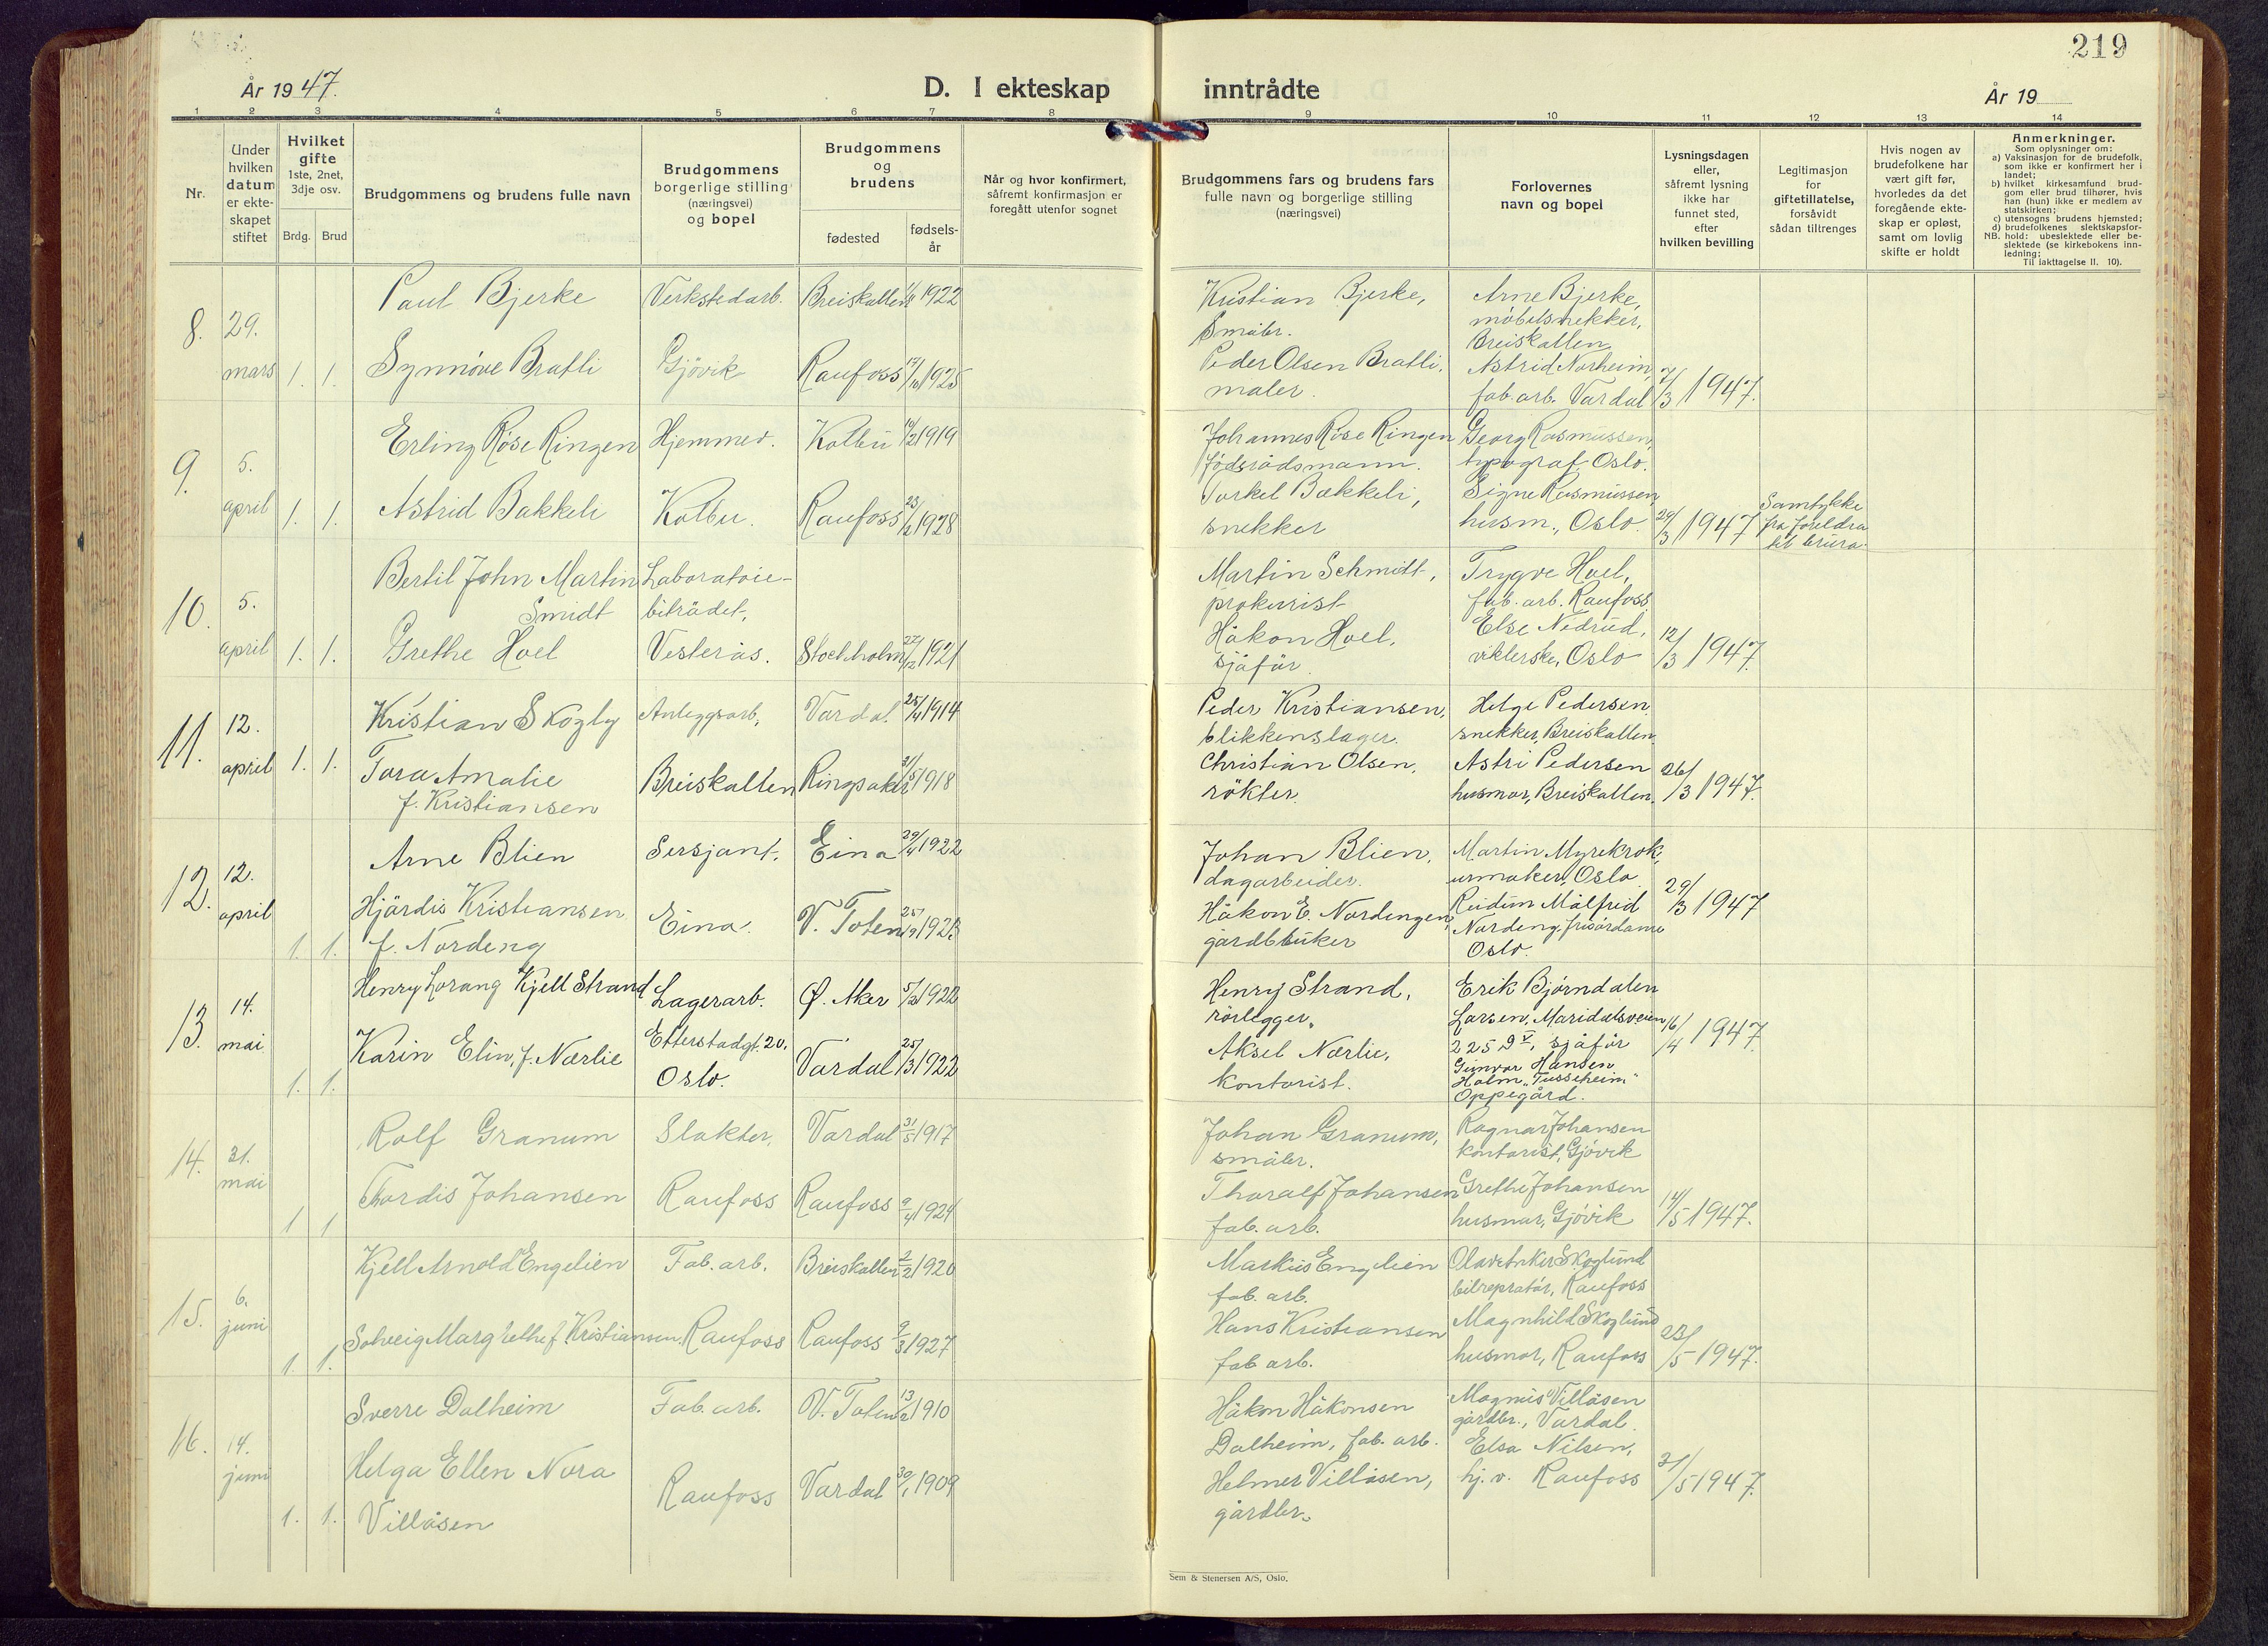 219
År 1947.
D. I ekteskap inntrådte
År 19
1 2 3 4 5 6 7 8 9 10 11 12 13 14
Nr.
Under
hvilken
datum
er ekte-
skapet
stiftet
Hvilket
gifte
1ste, 2net,
3dje osv.
Brdg. Brud
Brudgommens og brudens fulle navn
Brudgommens
borgerlige stilling
(næringsvei)
og bopel
Brudgommens
og
brudens
fødested
fødsels-
år
Når og hvor konfirmert,
såfremt konfirmasjon er
foregått utenfor sognet
Brudgommens fars og brudens fars
fulle navn og borgerlige stilling
(næringsvei)
Forlovernes
navn og bopel
Lysningsdagen
eller,
såfremt lysning
ikke har
funnet sted,
efter
hvilken bevilling
Legitimasjon
for
giftetillatelse,
forsåvidt
sådan tiltrenges
Hvis nogen av
brudefolkene har
vært gift før,
hvorledes da det
foregående ekte-
skap er opløst,
samt om lovlig
skifte er holdt
Anmerkninger.
Som oplysninger om:
a) Vaksinasjon for de brudefolk,
som ikke er konfirmert her i
landet;
b) hvilket kirkesamfund brud-
gom eller brud tilhører, hvis
han (hun) ikke er medlem av
statskirken;
c) utensogns brudens hjemsted;
d) brudefolkenes slektskapsfor-
NB. hold: ubeslektede eller be-
slektede (se kirkebokens inn-
ledning;
Til iakttagelse II. 10).
8. 29. mars 1. 1.
Paul Bjerke
Synnöve Bratli
Verkstedarb.
Gjövik
Breiskallen 1922
Raufoss 17/10 1925
Kristian Bjerke,
Småbr.
Peder Olsen Bratli,
maler.
Arne Bjerke,
möbelsnekker,
Breiskallen
Astrid Norheim,
fab. arb. Vardal
7/3 1947.
9. 5. april 1. 1.
Erling Röse Ringen
Astrid Bakkeli
Hjemmev.
Kolbu.
Kolbu 14/2 1919
Raufoss 1928
Johannes Röse Ringen
Torkel Bakkeli,
snekker
Georg Rasmussen,
typograf, Oslo.
Signe Rasmussen
husm., Oslo.
29/3 1947
Samtykke
fra foreldra
til brura.
10. 5. april 1. 1.
Bertil John Martin
Smidt
Grethe Hoel
Laboratoie-
biträdet,
Vesterås.
Stockholm 1921
Martin Schmidt,
prokurist
Håkon Hoel,
sjåför
Trygve Hoel,
fab. arb. Raufoss
Else Nedrud,
viklerske, Oslo
12/3 1947.
11. 12. april 1. 1.
Kristian Skogly
Tora Amalie
f. Kristiansen
Anleggsarb,
Breiskallen
Vardal. 25/4 1914
Ringsaker 1918
Peder Kristiansen,
blikkenslager.
Christian Olsen,
rökter.
Helge Pedersen
snekker, Breiskallen.
Astri Pedersen
husmor, Breiskallen.
26/3 1947.
12. 12. april 1. 1.
Arne Blien
Hjördis Kristiansen
f. Nordeng
Sersjant,
Eina.
Eina 29/4 1922
V. Toten
Johan Blien,
dagarbeider.
Håkon E. Nordengen,
gårdbruker
Martin Myrekrok,
urmaker, Oslo
Reidun Målfrid
Nordeng, frisördame
Oslo.
29/3 1947
13. 14. mai 1. 1.
Henry Lorang Kjell Strand
Karin Elin, f. Nærlie
Lagerarb.
Etterstadgt. 20.
Oslo.
Ø. Aker 1922
Vardal 25/3 1922
Henry Strand,
rörlegger.
Aksel Nærlie,
kontorist.
Erik Bjørndalen
Larsen, Maridalsveien
225 D V, sjåför
Gunvor Hansen
Holm, "Tusseheim"
Oppegård.
16/4 1947.
14. 31. mai 1 1
Rolf Granum
Tordis Johansen
Slakter,
Raufoss
Vardal 31/5 1917
Raufoss 9/4 1924
Johan Granum,
småbr.
Thoralf Johansen
fab. arb.
Ragnar Johansen
kontorist, Gjövik
Grethe Johansen
husmor, Gjövik
14/5 1947.
15. 6. juni 1. 1.
Kjell Arnold Engelien
Solveig Margrethe f. Kristiansen.
Fab. arb.
Raufoss
Breiskallen 2/2 1920
Raufoss 9/3 1927
Markus Engelien
fab. arb.
Hans Kristiansen
fab arb.
Skoglund
bilrepratör, Raufoss
Magnhild Skoglund
husmor, Raufoss
23/5 1947.
16. 14. juni 1. 1.
Sverre Dalheim
Helga Ellen Nora
Villåsen
Fab. arb.
Raufoss
V. Toten 1910
Vardal 30/1 1909
Håkon Håkonsen
Dalheim, fab. arb.
Helmer Villåsen,
gårdbr.
Magnus Villåsen
gårdbr., Vardal.
Elsa Nilsen,
hj. v. Raufoss
21/5 1947.
Sem & Stenersen A/S, Oslo.